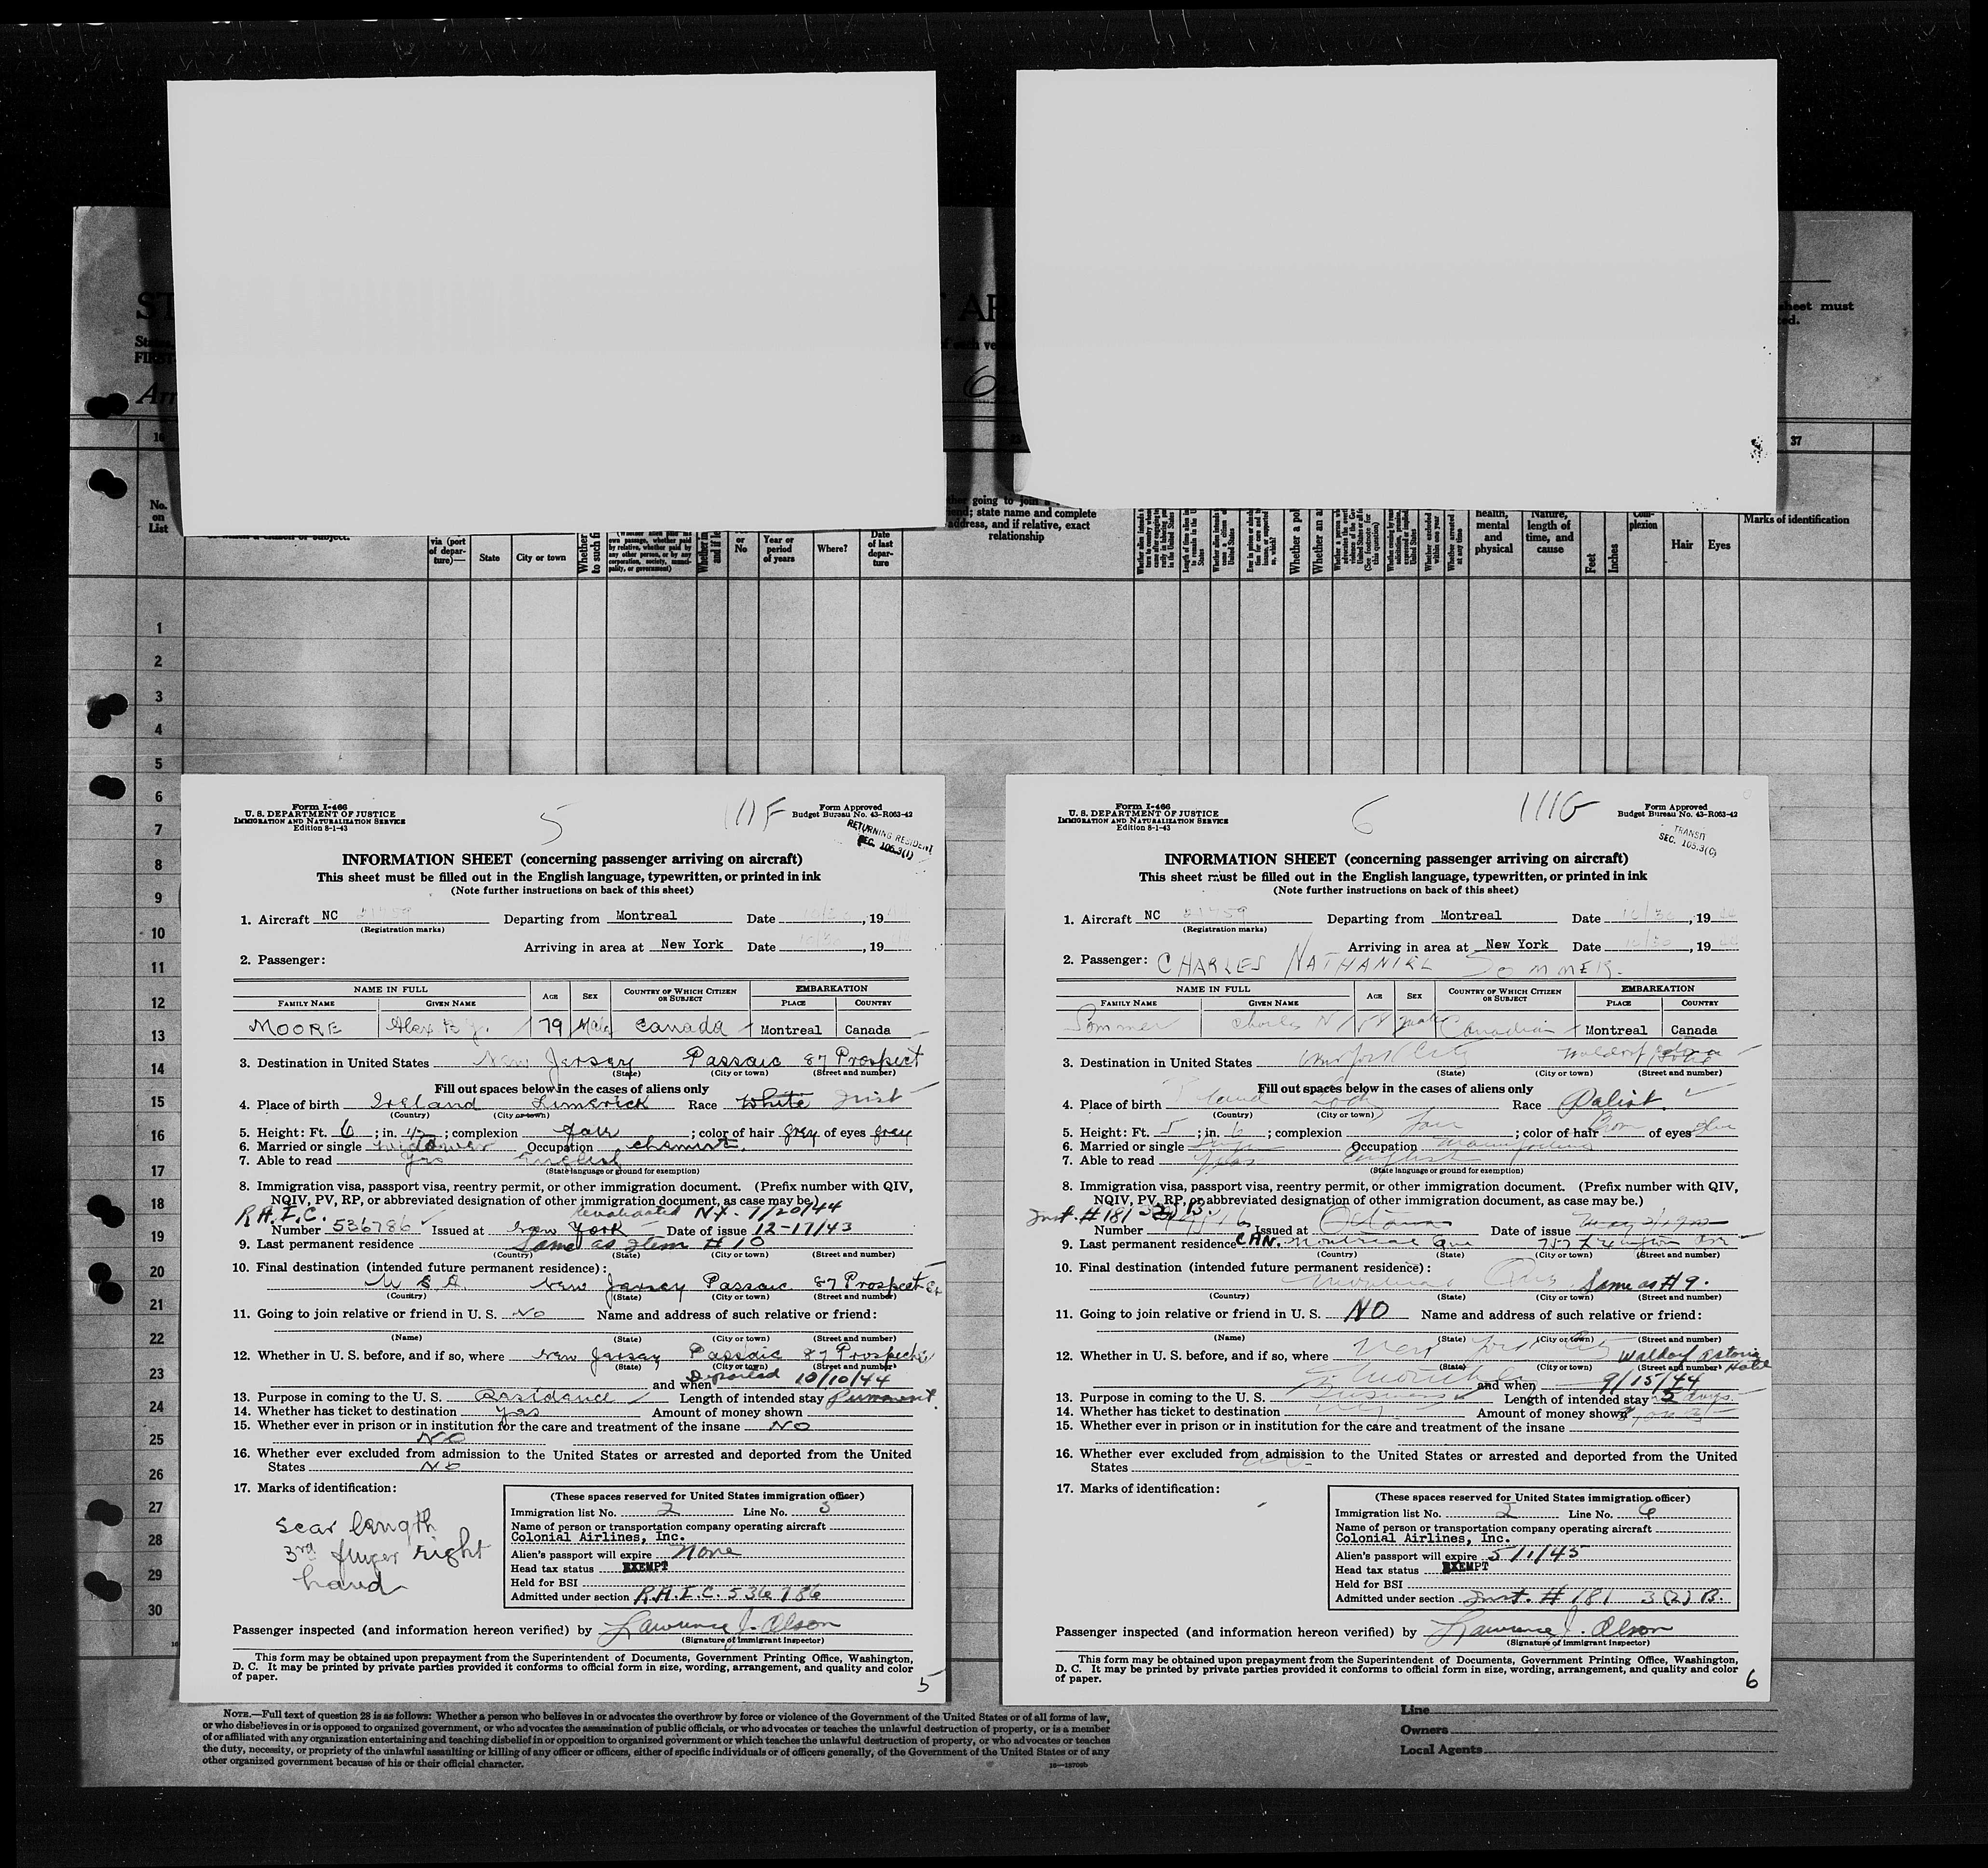 37
No. on List
via (port of departure)—
State
City or town
or No
Year or period of years
Where?
Date of last departure
address, and if relative, exact relationship
health, mental and physical
Nature, length of time, and cause
Feet
Inches
Hair
Eyes
Marks of identification
1
2
3
4
5
6
7
8
9
10
11
12
13
14
15
16
17
18
19
20
21
22
23
24
25
26
27
28
29
30
Form I-466
U. S. DEPARTMENT OF JUSTICE
IMMIGRATION AND NATURALIZATION SERVICE
Edition 8-1-43
5
111F
Form Approved
Budget Bureau No. 43-R063-42
RETURNING RESIDENT
SEC. 106.3(1)
INFORMATION SHEET (concerning passenger arriving on aircraft)
This sheet must be filled out in the English language, typewritten, or printed in ink
(Note further instructions on back of this sheet)
1. Aircraft NC 21759 Departing from Montreal Date 10/30, 19
(Registration marks)
Arriving in area at New York Date 10/30, 19
2. Passenger:
NAME IN FULL AGE SEX COUNTRY OF WHICH CITIZEN OR SUBJECT EMBARKATION
FAMILY NAME GIVEN NAME PLACE COUNTRY
MOORE Alex 79 Male Canada Montreal Canada
3. Destination in United States New Jersey Passaic 87 Prospect
(State) (City or town) (Street and number)
Fill out spaces below in the cases of aliens only
4. Place of birth Ireland Limerick Race White Irish
(Country) (City or town)
5. Height: Ft. 6; in. 1/2; complexion fair; color of hair grey of eyes grey
6. Married or single widower Occupation chemist.
7. Able to read Yes English
(State language or ground for exemption)
8. Immigration visa, passport visa, reentry permit, or other immigration document. (Prefix number with QIV,
NQIV, PV, RP, or abbreviated designation of other immigration document, as case may be.)
R.A.I.C. Revalidated N.Y. 7/20/44
Number 536786 Issued at New York Date of issue 12-17/43
9. Last permanent residence Same as Item # 10
(Country) (State) (City or town) (Street and number)
10. Final destination (intended future permanent residence):
U S A. New Jersey Passaic 87 Prospect St
(Country) (State) (City or town) (Street and number)
11. Going to join relative or friend in U. S. No Name and address of such relative or friend:
(Name) (State) (City or town) (Street and number)
12. Whether in U. S. before, and if so, where New Jersey Passaic 87 Prospect
(State) (City or town) (Street and number)
Departed
and when 10/10/44
13. Purpose in coming to the U. S. Residence Length of intended stay Permanent
14. Whether has ticket to destination Yes Amount of money shown
15. Whether ever in prison or in institution for the care and treatment of the insane NO
NO
16. Whether ever excluded from admission to the United States or arrested and deported from the United
States NO
17. Marks of identification:
scar length
3rd finger right
hand
(These spaces reserved for United States immigration officer)
Immigration list No. 2 Line No. 5
Name of person or transportation company operating aircraft
Colonial Airlines, Inc.
Alien's passport will expire None
Head tax status EXEMPT
Held for BSI
Admitted under section R.A.I.C. 536786
Passenger inspected (and information hereon verified) by Lawrence J. Olson
(Signature of immigrant inspector)
This form may be obtained upon prepayment from the Superintendent of Documents, Government Printing Office, Washington,
D. C. It may be printed by private parties provided it conforms to official form in size, wording, arrangement, and quality and color
of paper.
5
Form I-466
U. S. DEPARTMENT OF JUSTICE
IMMIGRATION AND NATURALIZATION SERVICE
Edition 8-1-43
6
111G
Form Approved
Budget Bureau No. 43-R063-42
TRANSIT
SEC. 105.3(C)
INFORMATION SHEET (concerning passenger arriving on aircraft)
This sheet must be filled out in the English language, typewritten, or printed in ink
(Note further instructions on back of this sheet)
1. Aircraft NC 21759 Departing from Montreal Date 10/30, 19
(Registration marks)
Arriving in area at New York Date 10/30, 19
2. Passenger: CHARLES NATHANIEL SOMMER.
NAME IN FULL AGE SEX COUNTRY OF WHICH CITIZEN OR SUBJECT EMBARKATION
FAMILY NAME GIVEN NAME PLACE COUNTRY
Sommer Charles N male Canadian Montreal Canada
3. Destination in United States New York City Waldorf Astoria
(State) (City or town) (Street and number)
Fill out spaces below in the cases of aliens only
4. Place of birth Poland Lodz Race Polish.
(Country) (City or town)
5. Height: Ft. 5; in. 6; complexion Fair; color of hair of eyes
6. Married or single Occupation
7. Able to read Yes English
(State language or ground for exemption)
8. Immigration visa, passport visa, reentry permit, or other immigration document. (Prefix number with QIV,
NQIV, PV, RP, or abbreviated designation of other immigration document, as case may be.)
Inst. # 181 3(2) B.
Number Issued at Ottawa Date of issue
9. Last permanent residence CAN. Montreal Que
(Country) (State) (City or town) (Street and number)
10. Final destination (intended future permanent residence):
Montreal Que Same as # 9.
(Country) (State) (City or town) (Street and number)
11. Going to join relative or friend in U. S. NO Name and address of such relative or friend:
(Name) (State) (City or town) (Street and number)
12. Whether in U. S. before, and if so, where New York City Waldorf Astoria Hotel
(State) (City or town) (Street and number)
and when 9/15/44
13. Purpose in coming to the U. S. Business Length of intended stay 5 days
14. Whether has ticket to destination Yes Amount of money shown
15. Whether ever in prison or in institution for the care and treatment of the insane
16. Whether ever excluded from admission to the United States or arrested and deported from the United
States
17. Marks of identification:
(These spaces reserved for United States immigration officer)
Immigration list No. 2 Line No. 6
Name of person or transportation company operating aircraft
Colonial Airlines, Inc.
Alien's passport will expire 5/1/45
Head tax status EXEMPT
Held for BSI
Admitted under section Inst. # 181 3(2) B
Passenger inspected (and information hereon verified) by Lawrence J. Olson
(Signature of immigrant inspector)
This form may be obtained upon prepayment from the Superintendent of Documents, Government Printing Office, Washington,
D. C. It may be printed by private parties provided it conforms to official form in size, wording, arrangement, and quality and color
of paper.
6
NOTE.—Full text of question 28 is as follows: Whether a person who believes in or advocates the overthrow by force or violence of the Government of the United States or of all forms of law,
or who disbelieves in or is opposed to organized government, or who advocates the assassination of public officials, or who advocates or teaches the unlawful destruction of property, or is a member
of or affiliated with any organization entertaining and teaching disbelief in or opposition to organized government or which teaches the unlawful destruction of property, or who advocates or teaches
the duty, necessity, or propriety of the unlawful assaulting or killing of any officer or officers, either of specific individuals or of officers generally, of the Government of the United States or of any
other organized government because of his or their official character.
Line
Owners
Local Agents